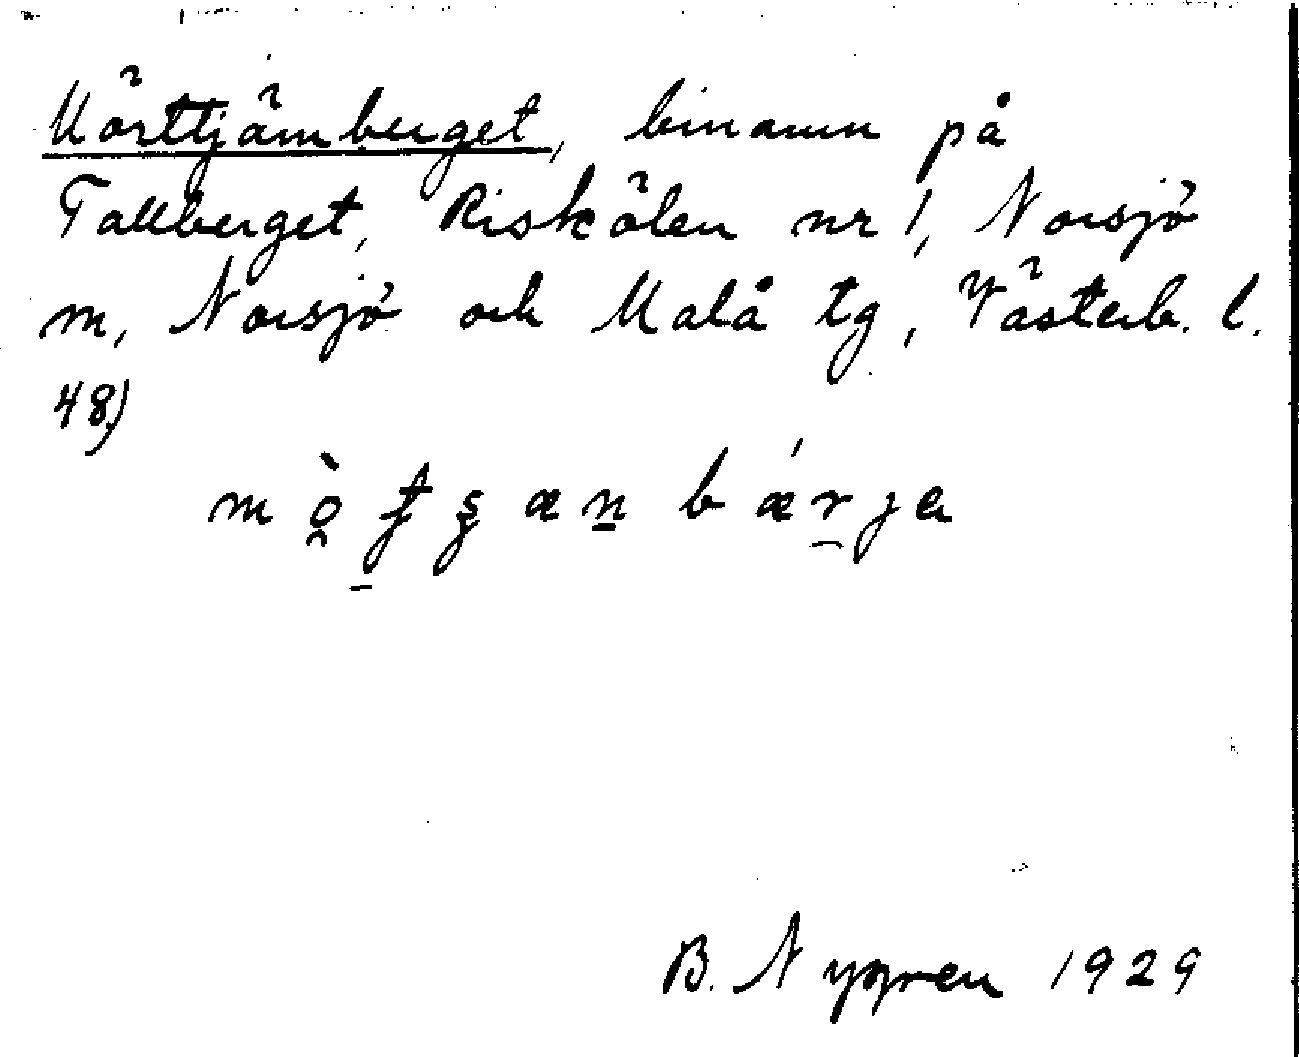 Mörttjämberget, binamn på
Tallberget, Riskälen nr 1, Norsjö
m, Norsjö och Malå tg, Västerb. l.
48)
mò̯t̠ʂæn̠bǽrjа
B. Nygren 1929